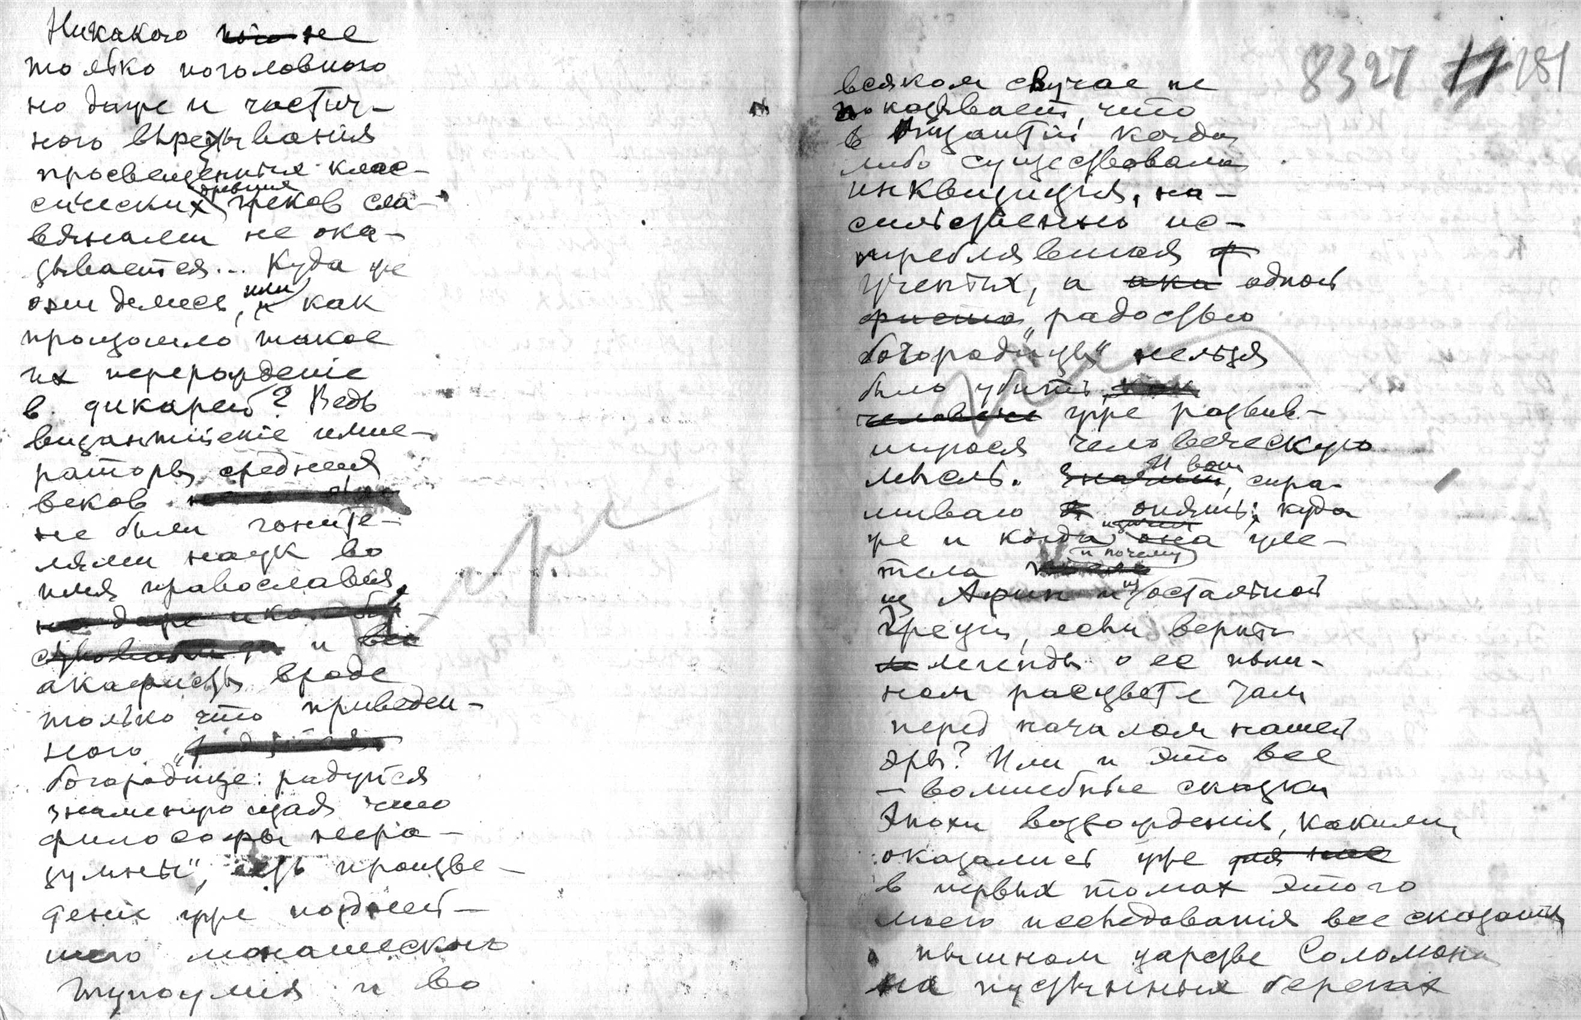 Никакого не
только поголовного
но даже и частич-
ного вырезывания
просвещенных клас-
сических древних греков сла-
вянами не ока-
зывается... Куда же
они делись, или как
произошло такое
их перерождение
в дикарей? Ведь
византийские импе-
раторы средних
веков
не были гоните-
лями наук во
имя православия,
и все
акафисты вроде
только что приведен-
ного
богородице: радуйся
знаменующая что
философы нера-
зумны", есть произве-
дение уже поздней-
шего монашеского
тупоумия и во
8327 181
всяком случае не
показывает, что
в Византии когда
либо существовала
инквизиция, на-
сильственно ис-
треблявшая
ученых, а одной
"радостью
богородицы" нельзя
было убить
уже развив-
шуюся человеческую
мысль. И вот, спра-
шиваю опять: куда
же и когда она уле-
тела и почему
из Афин и из остальной
Греции, если верить
легенды о ее пыш-
ном расцвете там
перед началом нашей
эры? Или и это все
— волшебные сказки
Эпохи возрождения, какими
оказались уже
в первых томах этого
моего исследования все сказания
о пышном царстве Соломона
на пустынных берегах